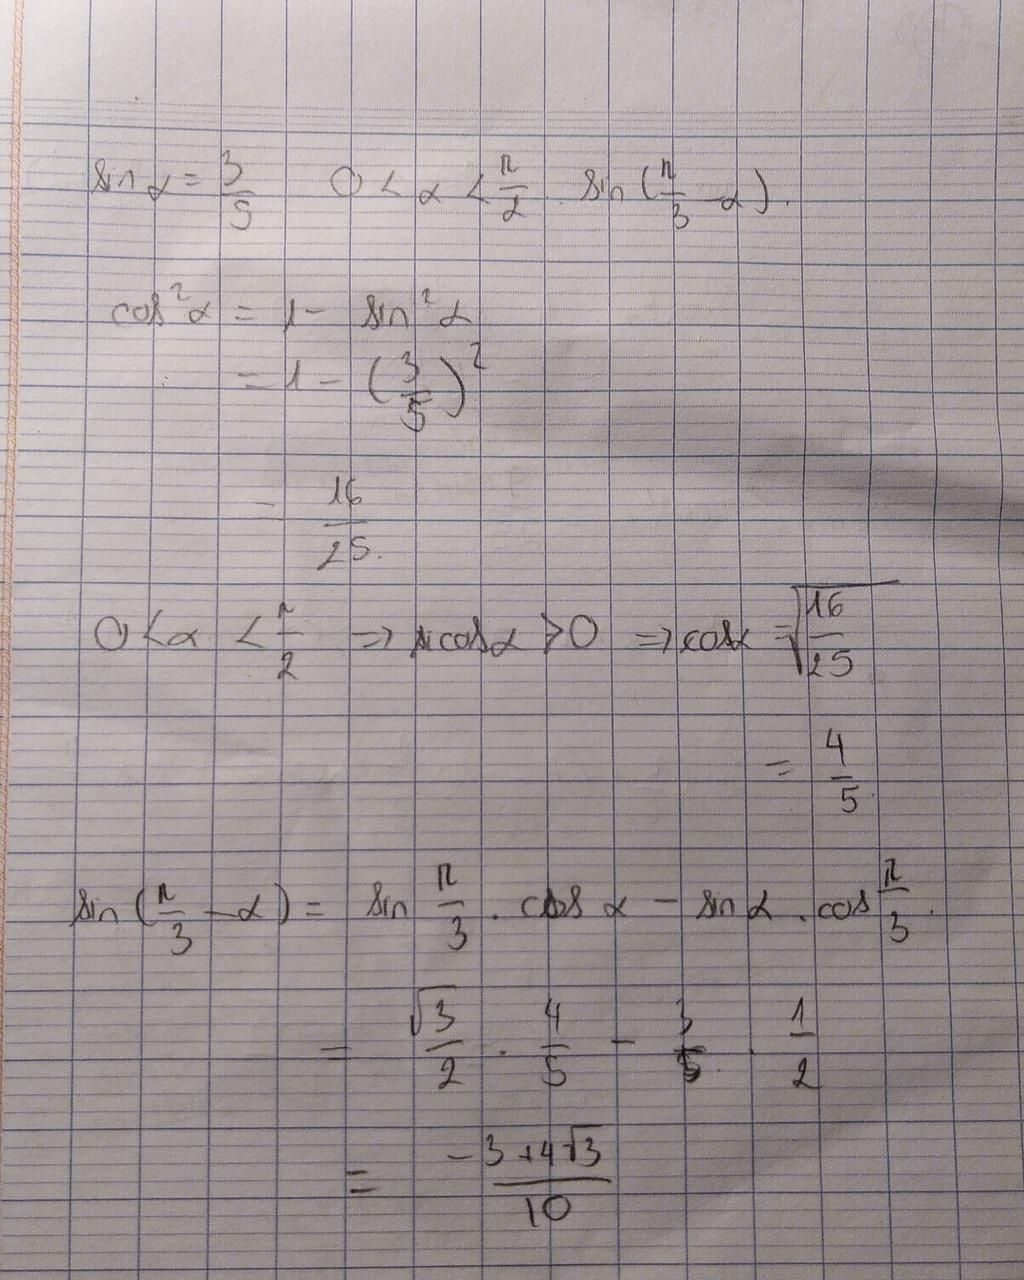 sin α = 3/5 0 < α < π/2 . sin(π/3 - α).
cos²α = 1 - sin²α
= 1 - (3/5)²
= 16/25.
0 < α < π/2 ⇒ cosα > 0 ⇒ cosα = √(16/25)
= 4/5
sin(π/3 - α) = sin π/3 . cos α - sin α . cos π/3.
= √3/2 . 4/5 - 3/5 . 1/2
= (-3+4√3)/10